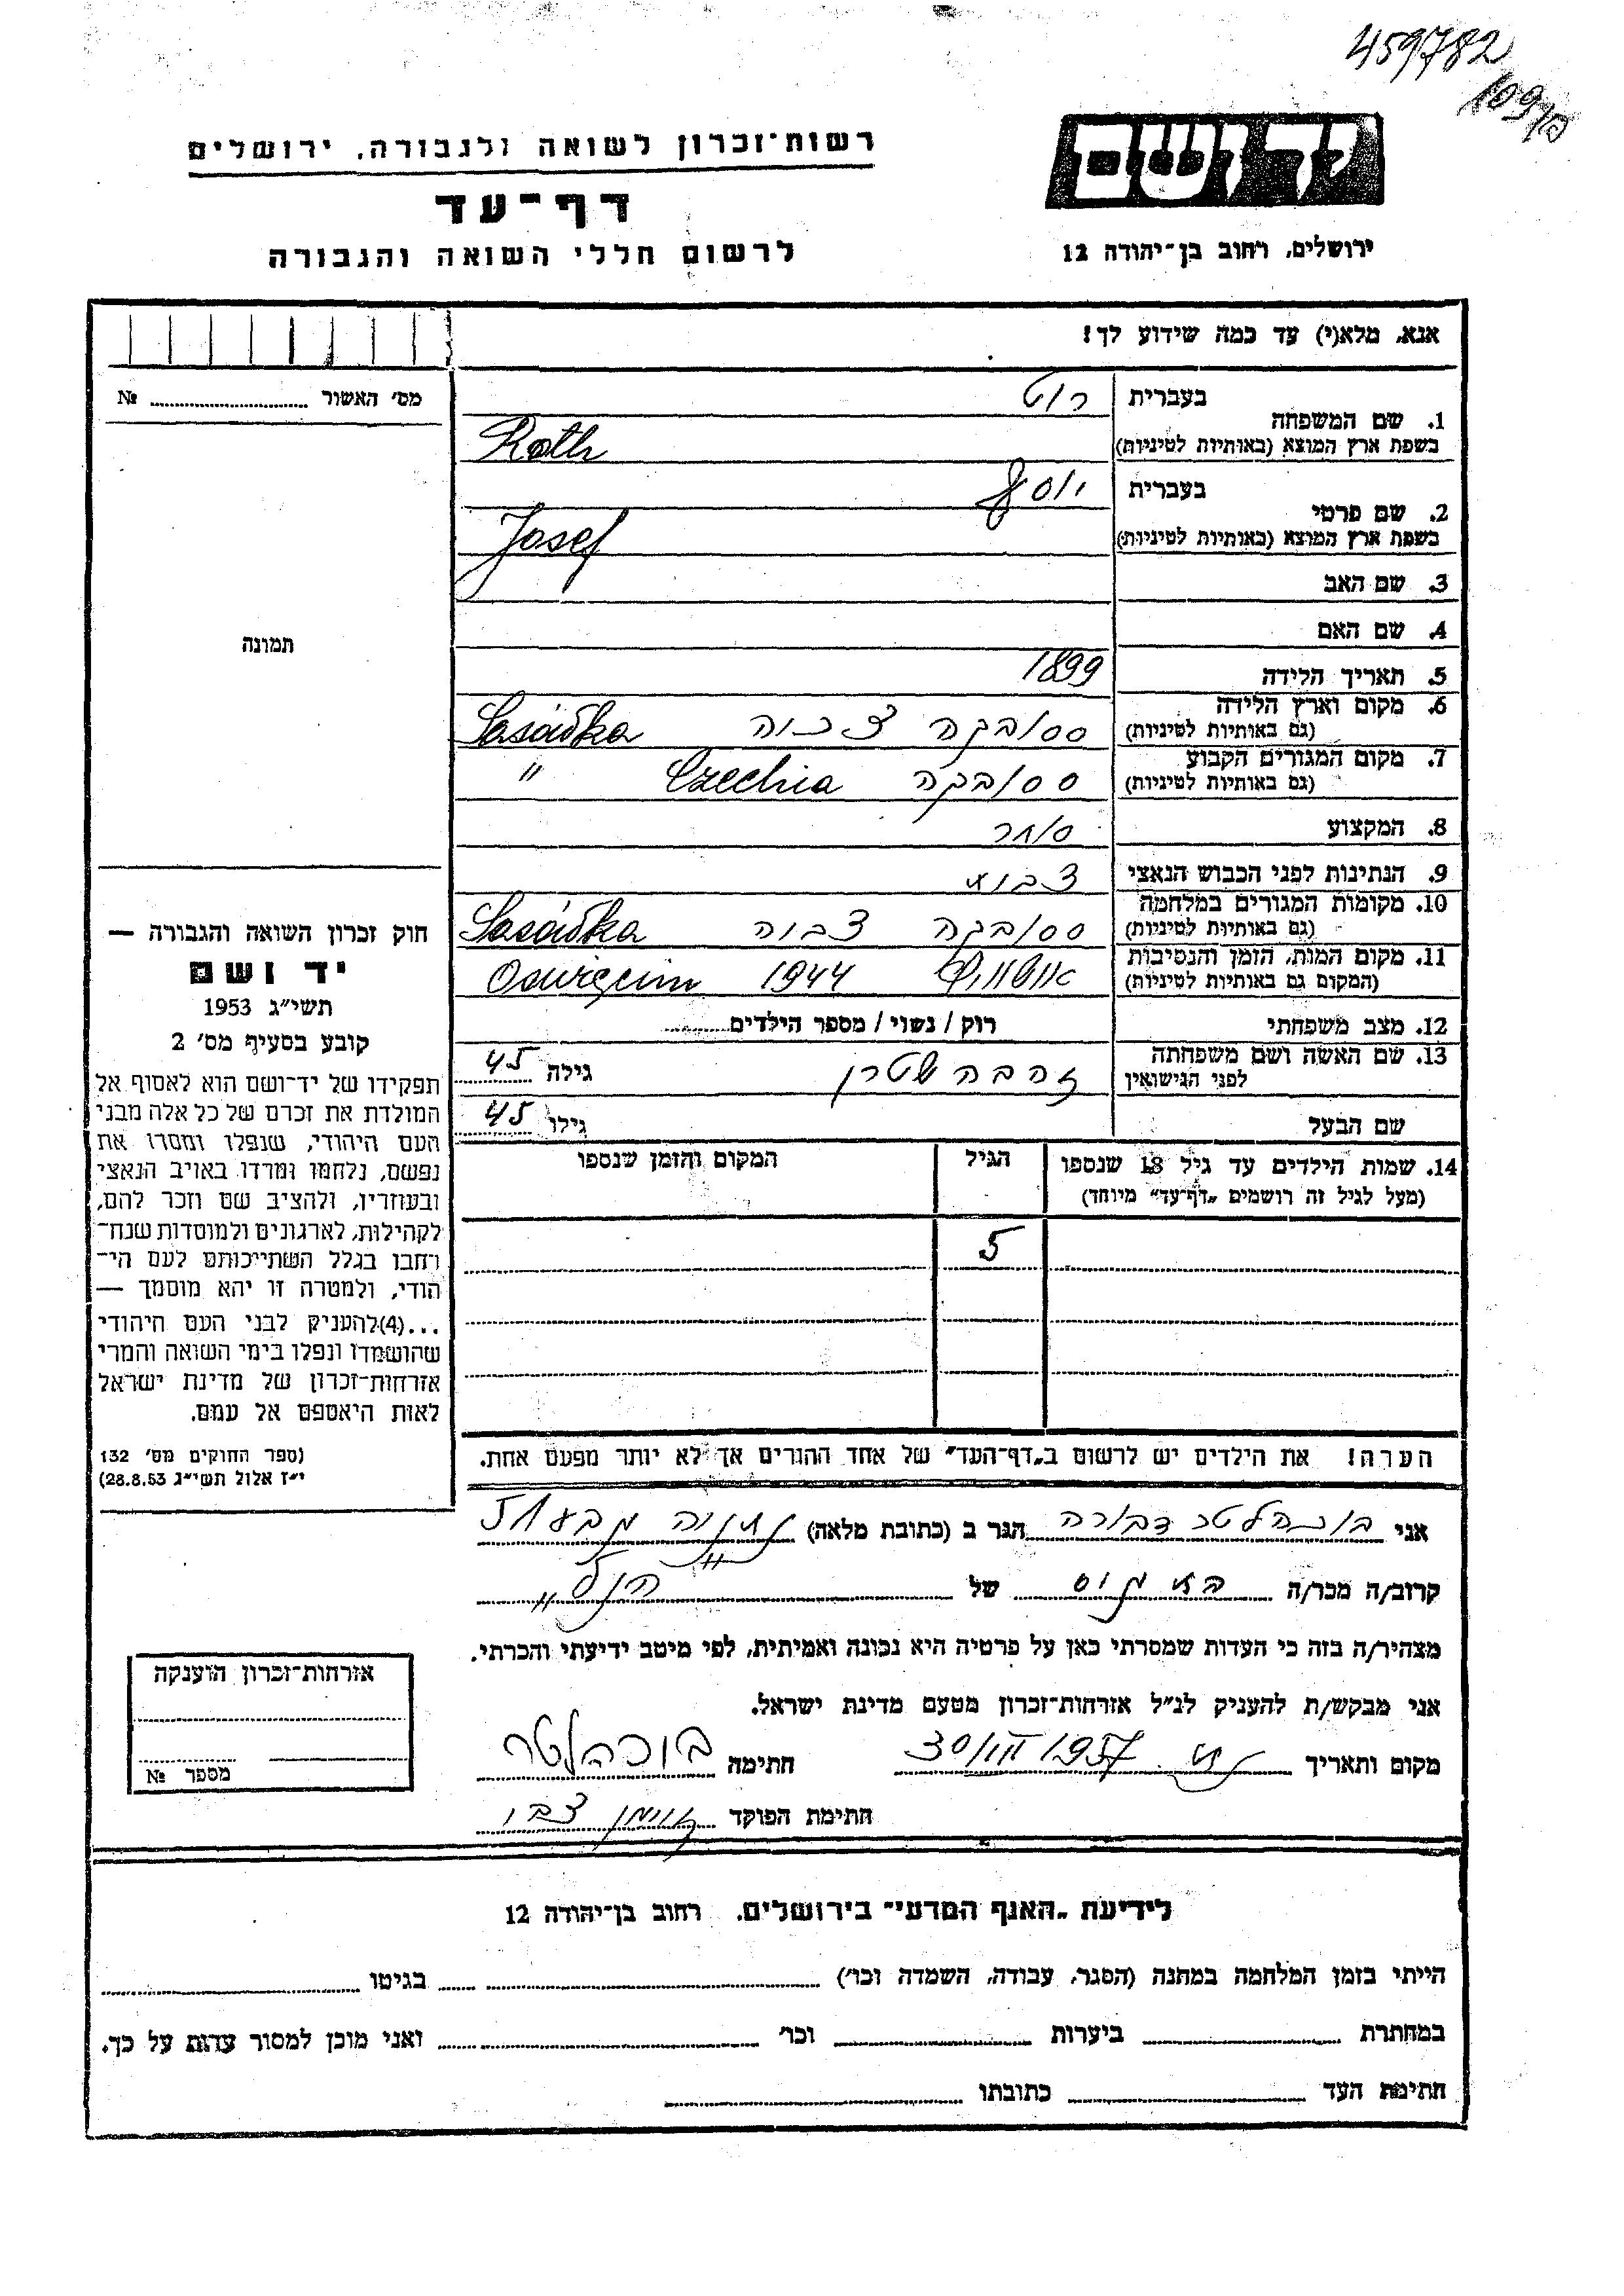 459782
רשות־זכרון לשואה ולגבורה, ירושלים
יד ושם
דף־עד
לרשום חללי השואה והגבורה
ירושלים, רחוב בן־יהודה 12
אנא, מלא(י) עד כמה שידוע לך!
מס׳ האשור № 
בעברית רוט
1. שם המשפחה
בשפת ארץ המוצא (באותיות לטיניות) Roth
בעברית יוסף
2. שם פרטי
בשפת ארץ המוצא (באותיות לטיניות) Josef
3. שם האב
4. שם האם
תמונה
5. תאריך הלידה 1899
6. מקום וארץ הלידה
(גם באותיות לטיניות) צכיה
7. מקום המגורים הקבוע
(גם באותיות לטיניות) Czechia "
8. המקצוע סוחר
9. הנתינות לפני הכבוש הנאצי
10. מקומות המגורים במלחמה
(גם באותיות לטיניות)
11. מקום המות, הזמן והנסיבות
(המקום גם באותיות לטיניות) 1944 Oswięcim
12. מצב משפחתי רוק / נשוי / מספר הילדים
13. שם האשה ושם משפחתה
לפני הנישואין זהבה שטרן גילה 45
שם הבעל גילו 45
14. שמות הילדים עד גיל 18 שנספו הגיל המקום והזמן שנספו
(מעל לגיל זה רושמים „דף־עד” מיוחד)
5
חוק זכרון השואה והגבורה —
יד ושם
תשי״ג 1953
קובע בסעיף מס׳ 2
תפקידו של יד־ושם הוא לאסוף אל
המולדת את זכרם של כל אלה מבני
העם היהודי, שנפלו ומסרו את
נפשם, נלחמו ומרדו באויב הנאצי
ובעוזריו, ולהציב שם וזכר להם,
לקהילות, לארגונים ולמוסדות שנח־
רחבו בגלל השתייכותם לעם הי־
הודי, ולמטרה זו יהא מוסמך —
...(4)להעניק לבני העם היהודי
שהושמדו ונפלו בימי השואה והמרי
אזרחות־זכרון של מדינת ישראל
לאות היאספם אל עמם.
(ספר החוקים מס׳ 132
י״ז אלול תשי״ג 28.8.53)
הערה! את הילדים יש לרשום ב„דף־העד” של אחד ההורים אך לא יותר מפעם אחת.
אני בוכהלטר דבורה הגר ב (כתובת מלאה) נתניה
קרוב/ה מכר/ה של
מצהיר/ה בזה כי העדות שמסרתי כאן על פרטיה היא נכונה ואמיתית, לפי מיטב ידיעתי והכרתי.
אני מבקש/ת להעניק לנ״ל אזרחות־זכרון מטעם מדינת ישראל.
מקום ותאריך 1957 חתימה בוכהלטר
חתימת הפוקד
אזרחות־זכרון הוענקה
מספר №
לידיעת „האגף המדעי” בירושלים, רחוב בן־יהודה 12
הייתי בזמן המלחמה במחנה (הסגר, עבודה, השמדה וכו׳) בגיטו
במחתרת ביערות וכו׳ ואני מוכן למסור עדות על כך.
חתימת העד כתובתו